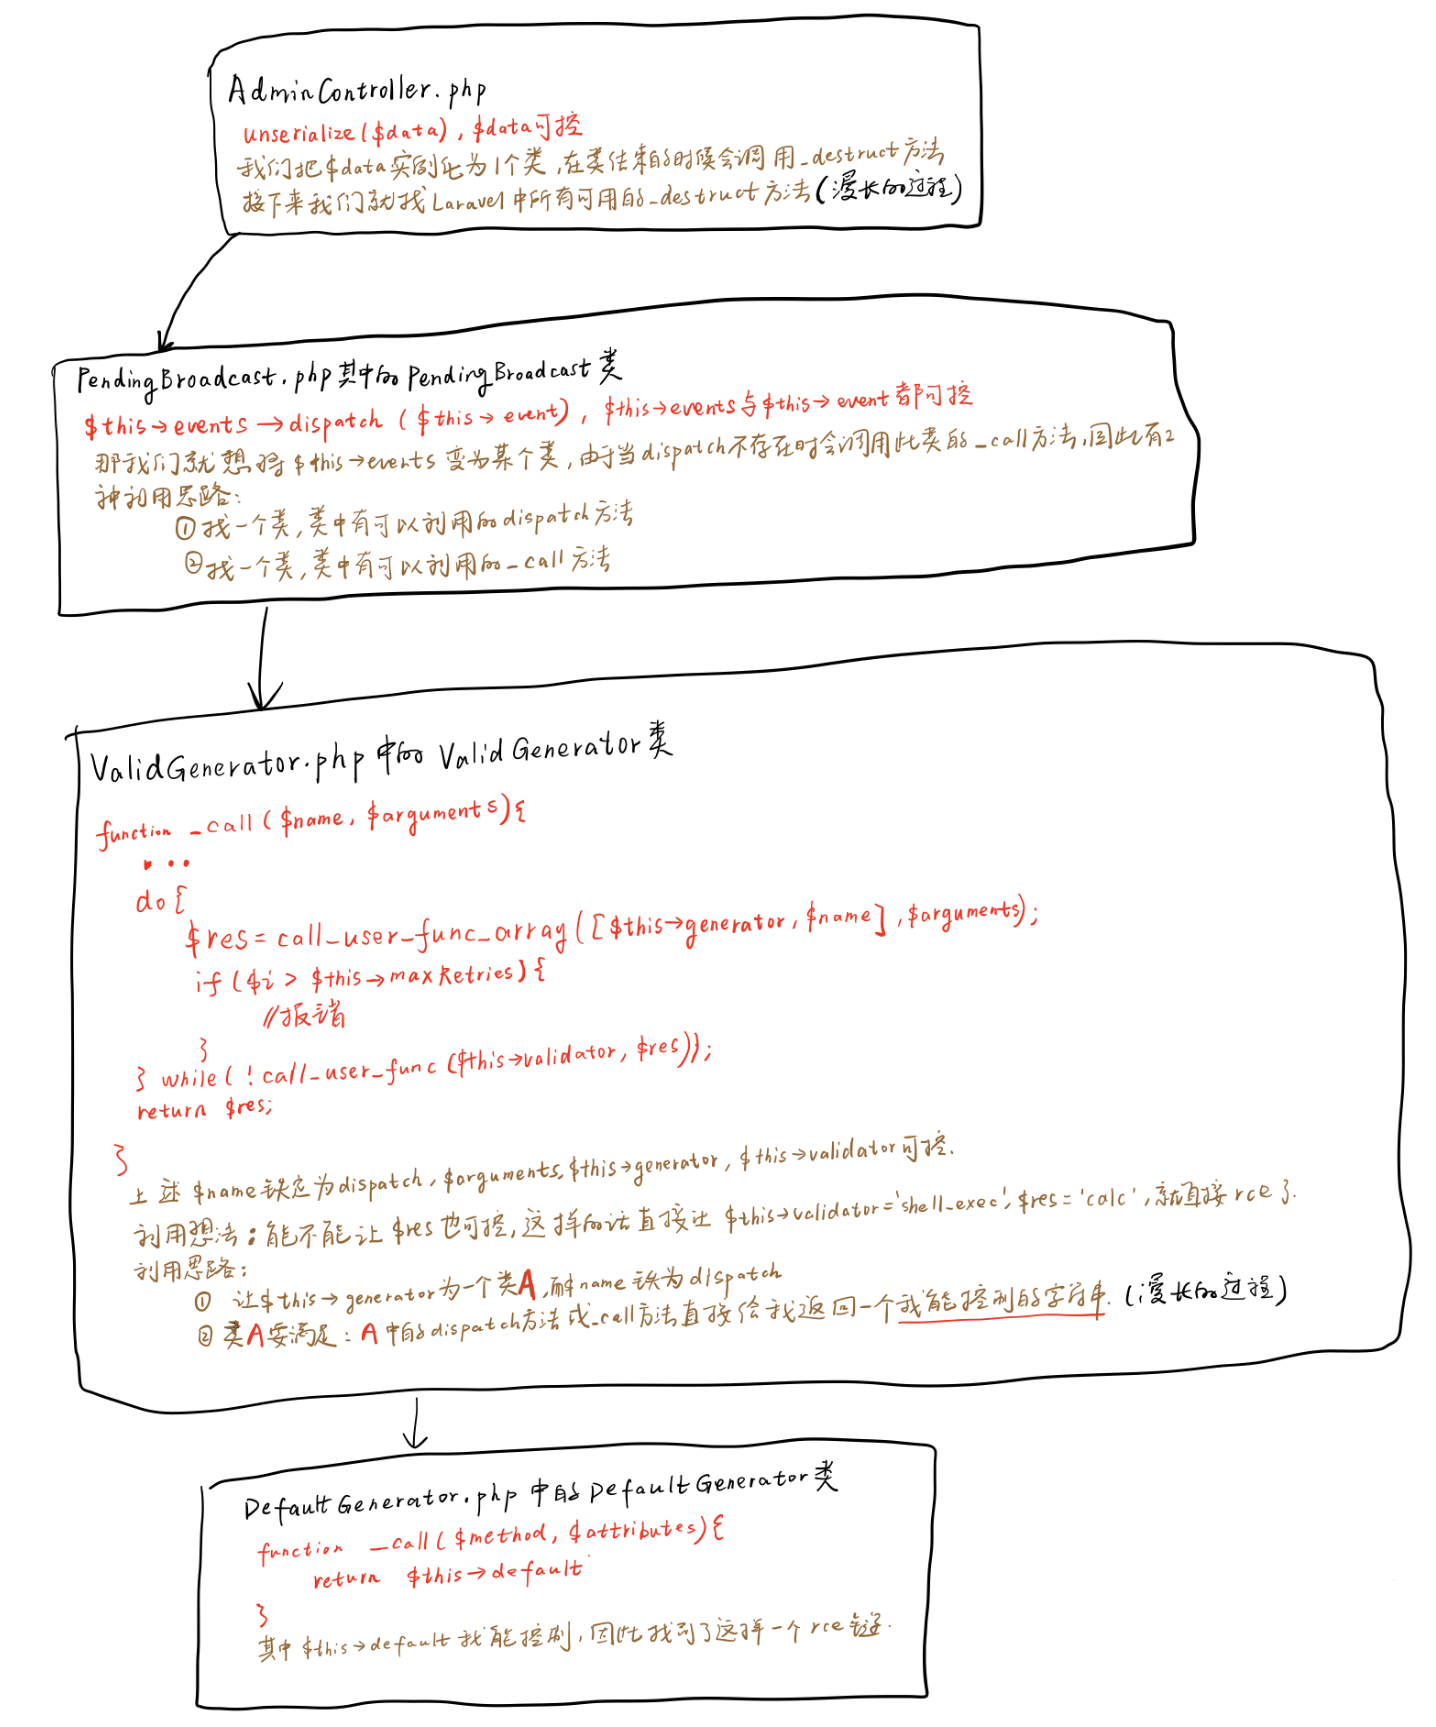 AdminController.php
unserialize($data), $data可控
我们把$data实例化为1个类,在类结束的时候会调用_destruct方法
接下来我们就找Laravel中所有可用的_destruct方法(漫长的过程)
PendingBroadcast.php其中的PendingBroadcast类
$this→events→dispatch ($this→event), $this→events与$this→event都可控
那我们就想将$this→events变为某个类,由于当dispatch不存在时会调用此类的_call方法,因此有2
种利用思路:
①找一个类,类中有可以利用的dispatch方法
②找一个类,类中有可以利用的_call方法
ValidGenerator.php中的ValidGenerator类
function _call($name, $arguments){
...
do{
$res=call_user_func_array([$this→generator,$name],$arguments);
if($i > $this→maxRetries){
//报错
}
} while(!call_user_func($this→validator, $res));
return $res;
}
上述$name铁定为dispatch, $arguments, $this→generator, $this→validator可控.
利用想法:能不能让$res也可控,这样的话直接让$this→validator='shell_exec', $res='calc',就直接rce了.
利用思路:
① 让$this→generator为一个类A,name铁为dispatch
② 类A要满足:A中的dispatch方法或_call方法直接给我返回一个我能控制的字符串.(漫长的过程)
DefaultGenerator.php中的DefaultGenerator类
function _call($method, $attributes){
return $this→default
}
其中$this→default我能控制,因此找到了这样一个rce链.